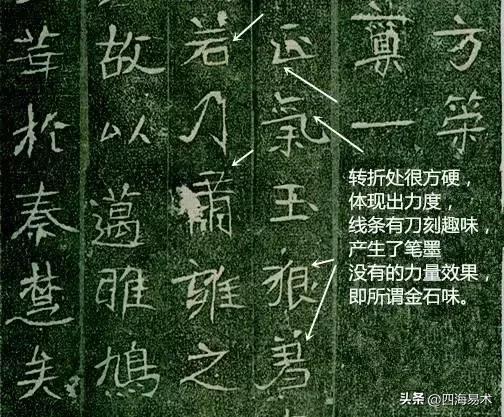 方策
一
正氣玉狼
若乃肅雍之
故以邁雎鳩
於秦楚矣
转折处很方硬，
体现出力度，
线条有刀刻趣味，
产生了笔墨
没有的力量效果，
即所谓金石味。
头条 @四海易术